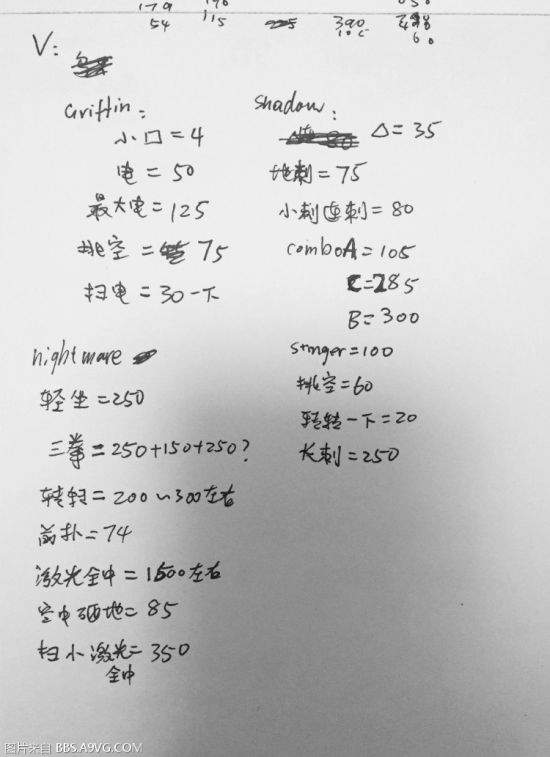 54 115 390
V:
Griffin:
小口=4
电=50
最大电=125
挑空=75
扫电=30一下
Shadow:
△=35
地刺=75
小刺连刺=80
comboA=105
C=285
B=300
stinger=100
挑空=60
转转一下=20
长刺=250
nightmare
轻坐=250
三拳=250+150+250?
转转=200~300左右
前扑=74
激光全中=1500左右
空中砸地=85
扫小激光=350
全中
图片来自 BBS.A9VG.COM